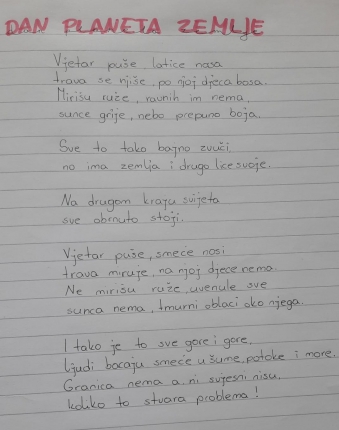 DAN PLANETA ZEMLJE
Vjetar puše, latice nosa
trava se njiše, po njoj djeca bosa.
Mirišu ruže, ravnih im nema,
sunce grije, nebo prepuno boja.
Sve to tako bajno zvuči
no ima zemlja i drugo lice svoje.
Na drugom kraju svijeta
sve obrnuto stoji.
Vjetar puše, smeće nosi
trava miruje, na njoj djece nema.
Ne mirišu ruže, uvenule sve
sunca nema, tmurni oblaci oko njega.
I tako je to sve gore i gore,
ljudi bacaju smeće u šume, potoke i more.
Granica nema a ni svjesni nisu,
koliko to stvara problema!